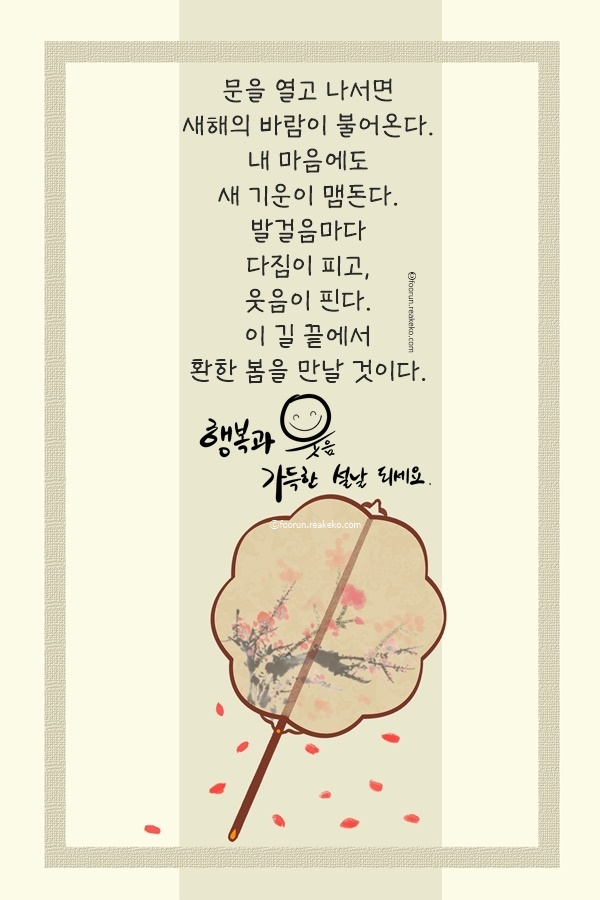 문을 열고 나서면
새해의 바람이 불어온다.
내 마음에도
새 기운이 맴돈다.
발걸음마다
다짐이 피고,
웃음이 핀다.
이 길 끝에서
환한 봄을 만날 것이다.
©foorun.reakeko.com
행복과 웃음
가득한 설날 되세요.
©foorun.reakeko.com